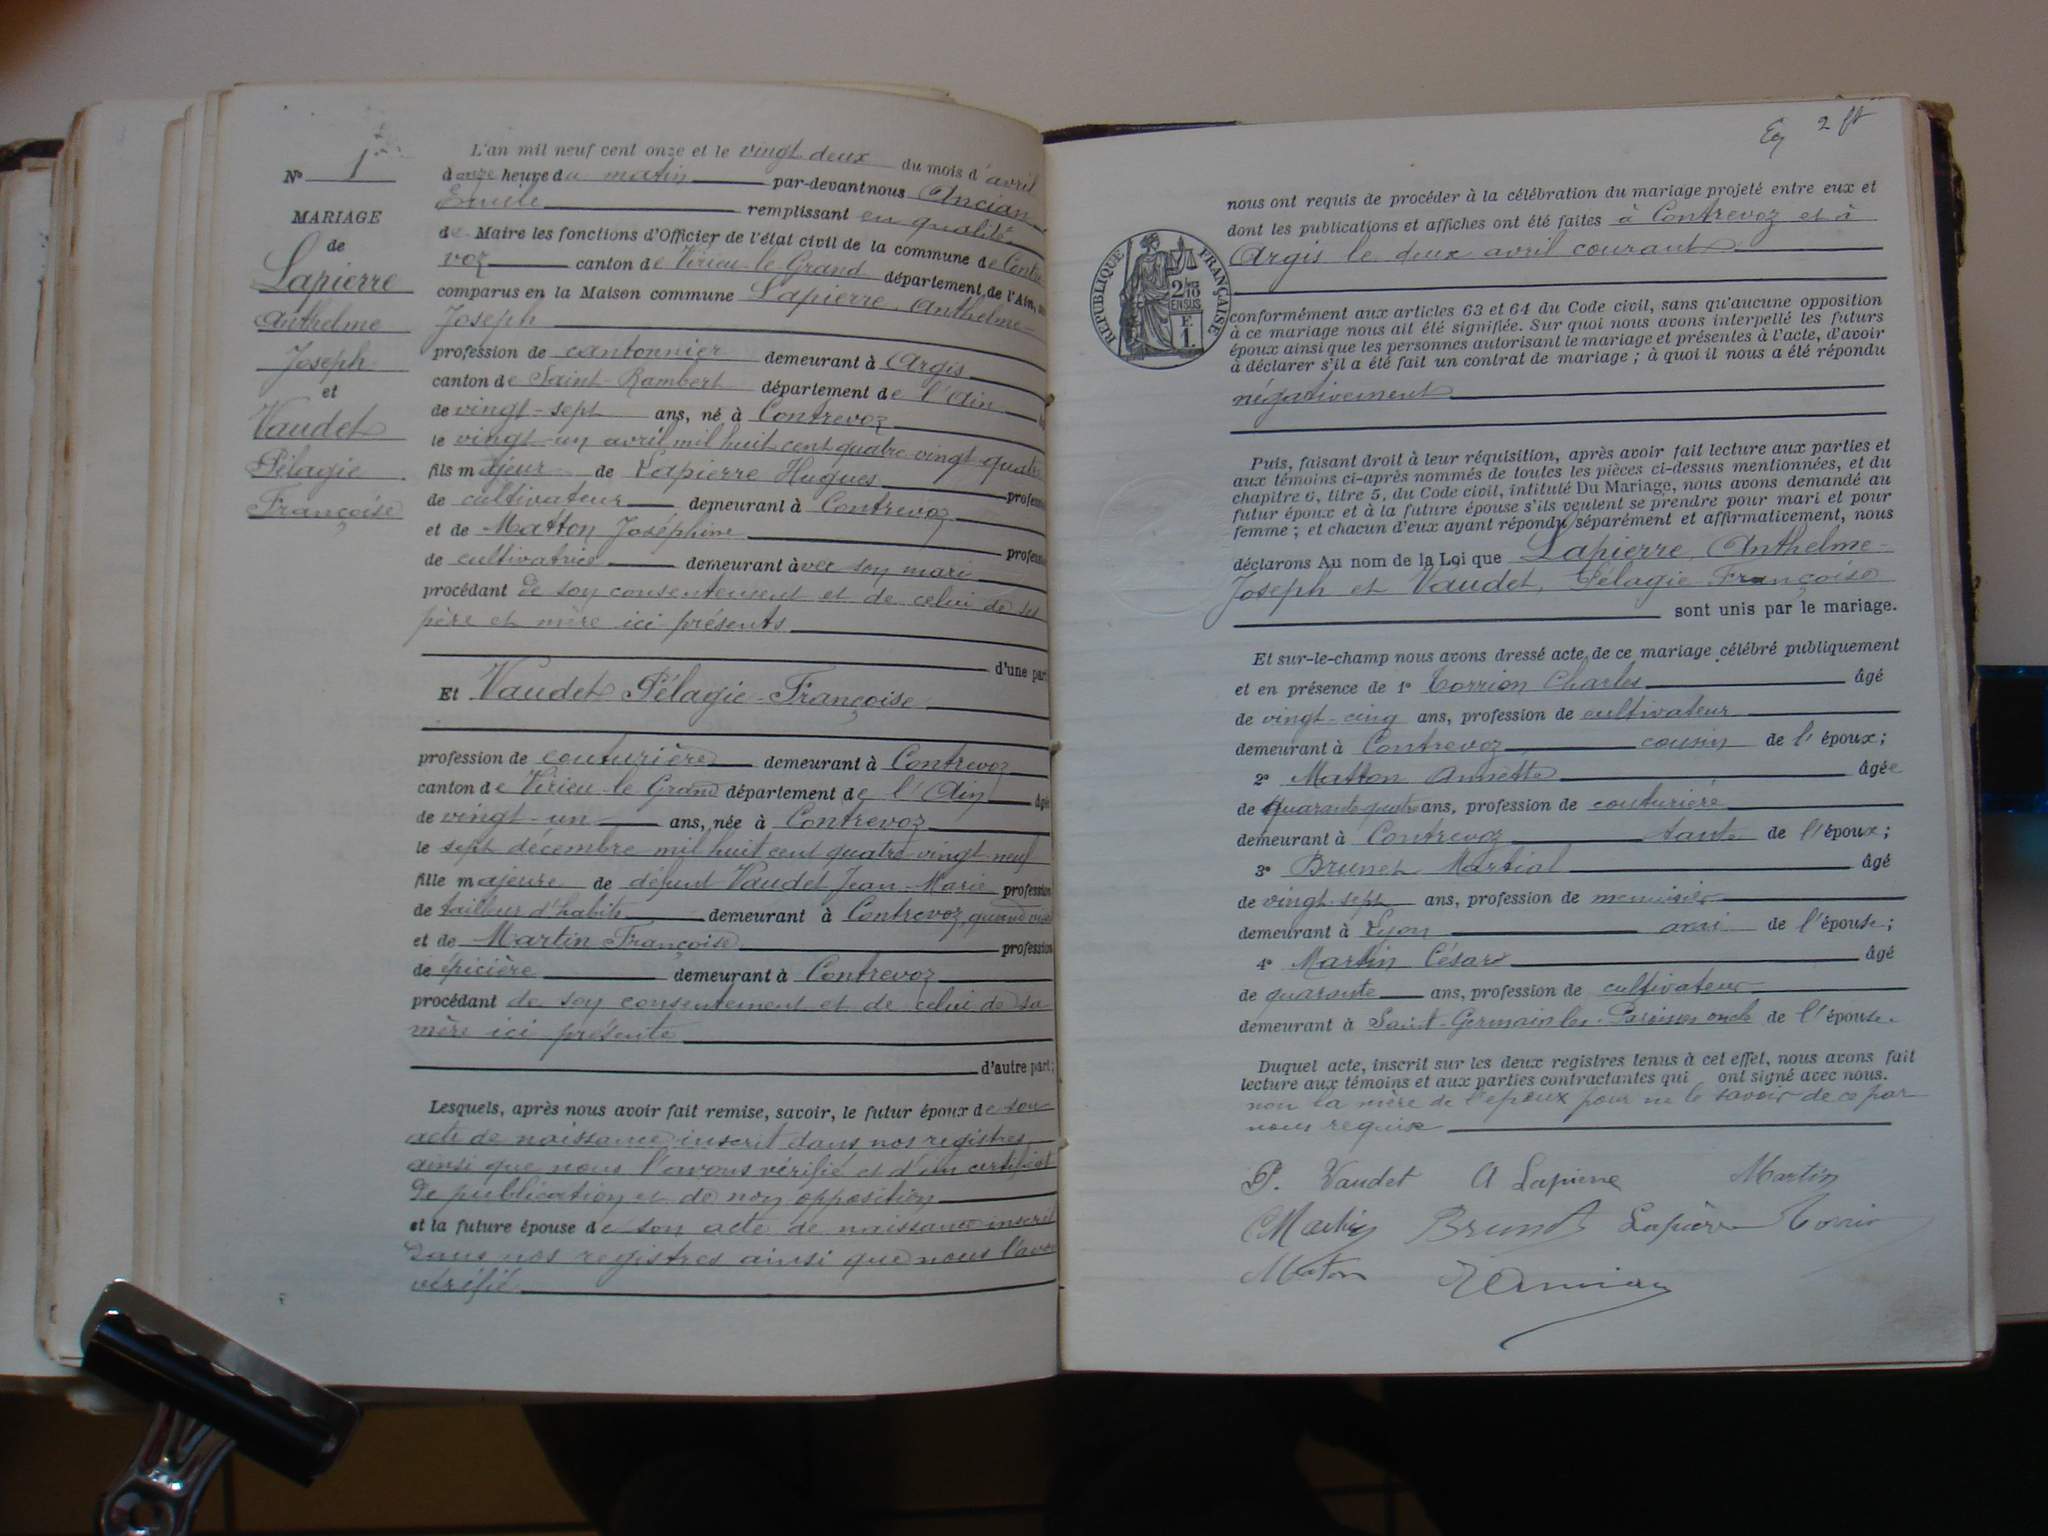 N° 1
MARIAGE
de
Lapierre
Anthelme
Joseph
et
Vaudet
Pélagie
Françoise
L'an mil neuf cent onze et le vingt deux du mois d'avril
à onze heure du matin par-devant nous Ancian
Emile remplissant en qualité
de Maire les fonctions d'Officier de l'état civil de la commune de Contre
voz canton de Virieu-le-Grand département de l'Ain,
comparus en la Maison commune Lapierre, Anthelme-
Joseph
profession de cantonnier demeurant à Argis
canton de Saint-Rambert département de l'Ain
de vingt-sept ans, né à Contrevoz
le vingt-un avril mil huit cent quatre vingt-quatre
fils majeur de Lapierre Hugues profession
de cultivateur demeurant à Contrevoz
et de Matton Joséphine profession
de cultivatrice demeurant avec son mari
procédant de son consentement et de celui de ses
père et mère ici présents
d'une part
Et Vaudet Pélagie-Françoise
profession de couturière demeurant à Contrevoz
canton de Virieu-le-Grand département de l'Ain âgée
de vingt-un ans, née à Contrevoz
le sept décembre mil huit cent quatre-vingt-neuf
fille majeure de défunt Vaudet Jean-Marie profession
de tailleur d'habits demeurant à Contrevoz, quand vivait
et de Martin Françoise profession
de épicière demeurant à Contrevoz
procédant de son consentement et de celui de sa
mère ici présente
d'autre part;
Lesquels, après nous avoir fait remise, savoir, le futur époux de son
acte de naissance inscrit dans nos registres
ainsi que nous l'avons vérifié et d'un certificat
de publication et de non opposition
et la future épouse de son acte de naissance inscrit
dans nos registres ainsi que nous l'avons
vérifié
2
RÉPUBLIQUE FRANÇAISE
2/10
EN SUS
F.
1.
nous ont requis de procéder à la célébration du mariage projeté entre eux et
dont les publications et affiches ont été faites à Contrevoz et à
Argis le deux avril courant
conformément aux articles 63 et 64 du Code civil, sans qu'aucune opposition
à ce mariage nous ait été signifiée. Sur quoi nous avons interpellé les futurs
époux ainsi que les personnes autorisant le mariage et présentes à l'acte, d'avoir
à déclarer s'il a été fait un contrat de mariage; à quoi il nous a été répondu
négativement
Puis, faisant droit à leur réquisition, après avoir fait lecture aux parties et
aux témoins ci-après nommés de toutes les pièces ci-dessus mentionnées, et du
chapitre 6, titre 5, du Code civil, intitulé Du Mariage, nous avons demandé au
futur époux et à la future épouse s'ils veulent se prendre pour mari et pour
femme; et chacun d'eux ayant répondu séparément et affirmativement, nous
déclarons Au nom de la Loi que Lapierre Anthelme-
Joseph et Vaudet, Pélagie-Françoise
sont unis par le mariage.
Et sur-le-champ nous avons dressé acte de ce mariage célébré publiquement
et en présence de 1° Torrion Charles âgé
de vingt-cinq ans, profession de cultivateur
demeurant à Contrevoz cousin de l'époux;
2° Matton Annette âgée
de quarante-quatre ans, profession de couturière
demeurant à Contrevoz tante de l'époux;
3° Brunet Martial âgé
de vingt-sept ans, profession de menuisier
demeurant à Lyon ami de l'épouse;
4° Martin César âgé
de quarante ans, profession de cultivateur
demeurant à Saint-Germain-les-Paroisses oncle de l'épouse.
Duquel acte, inscrit sur les deux registres tenus à cet effet, nous avons fait
lecture aux témoins et aux parties contractantes qui ont signé avec nous.
non la mère de l'époux pour ne le savoir de ce par
nous requise
P. Vaudet A Lapierre Martin
Martin Brunet Lapierre Torrion
Maton Ancian